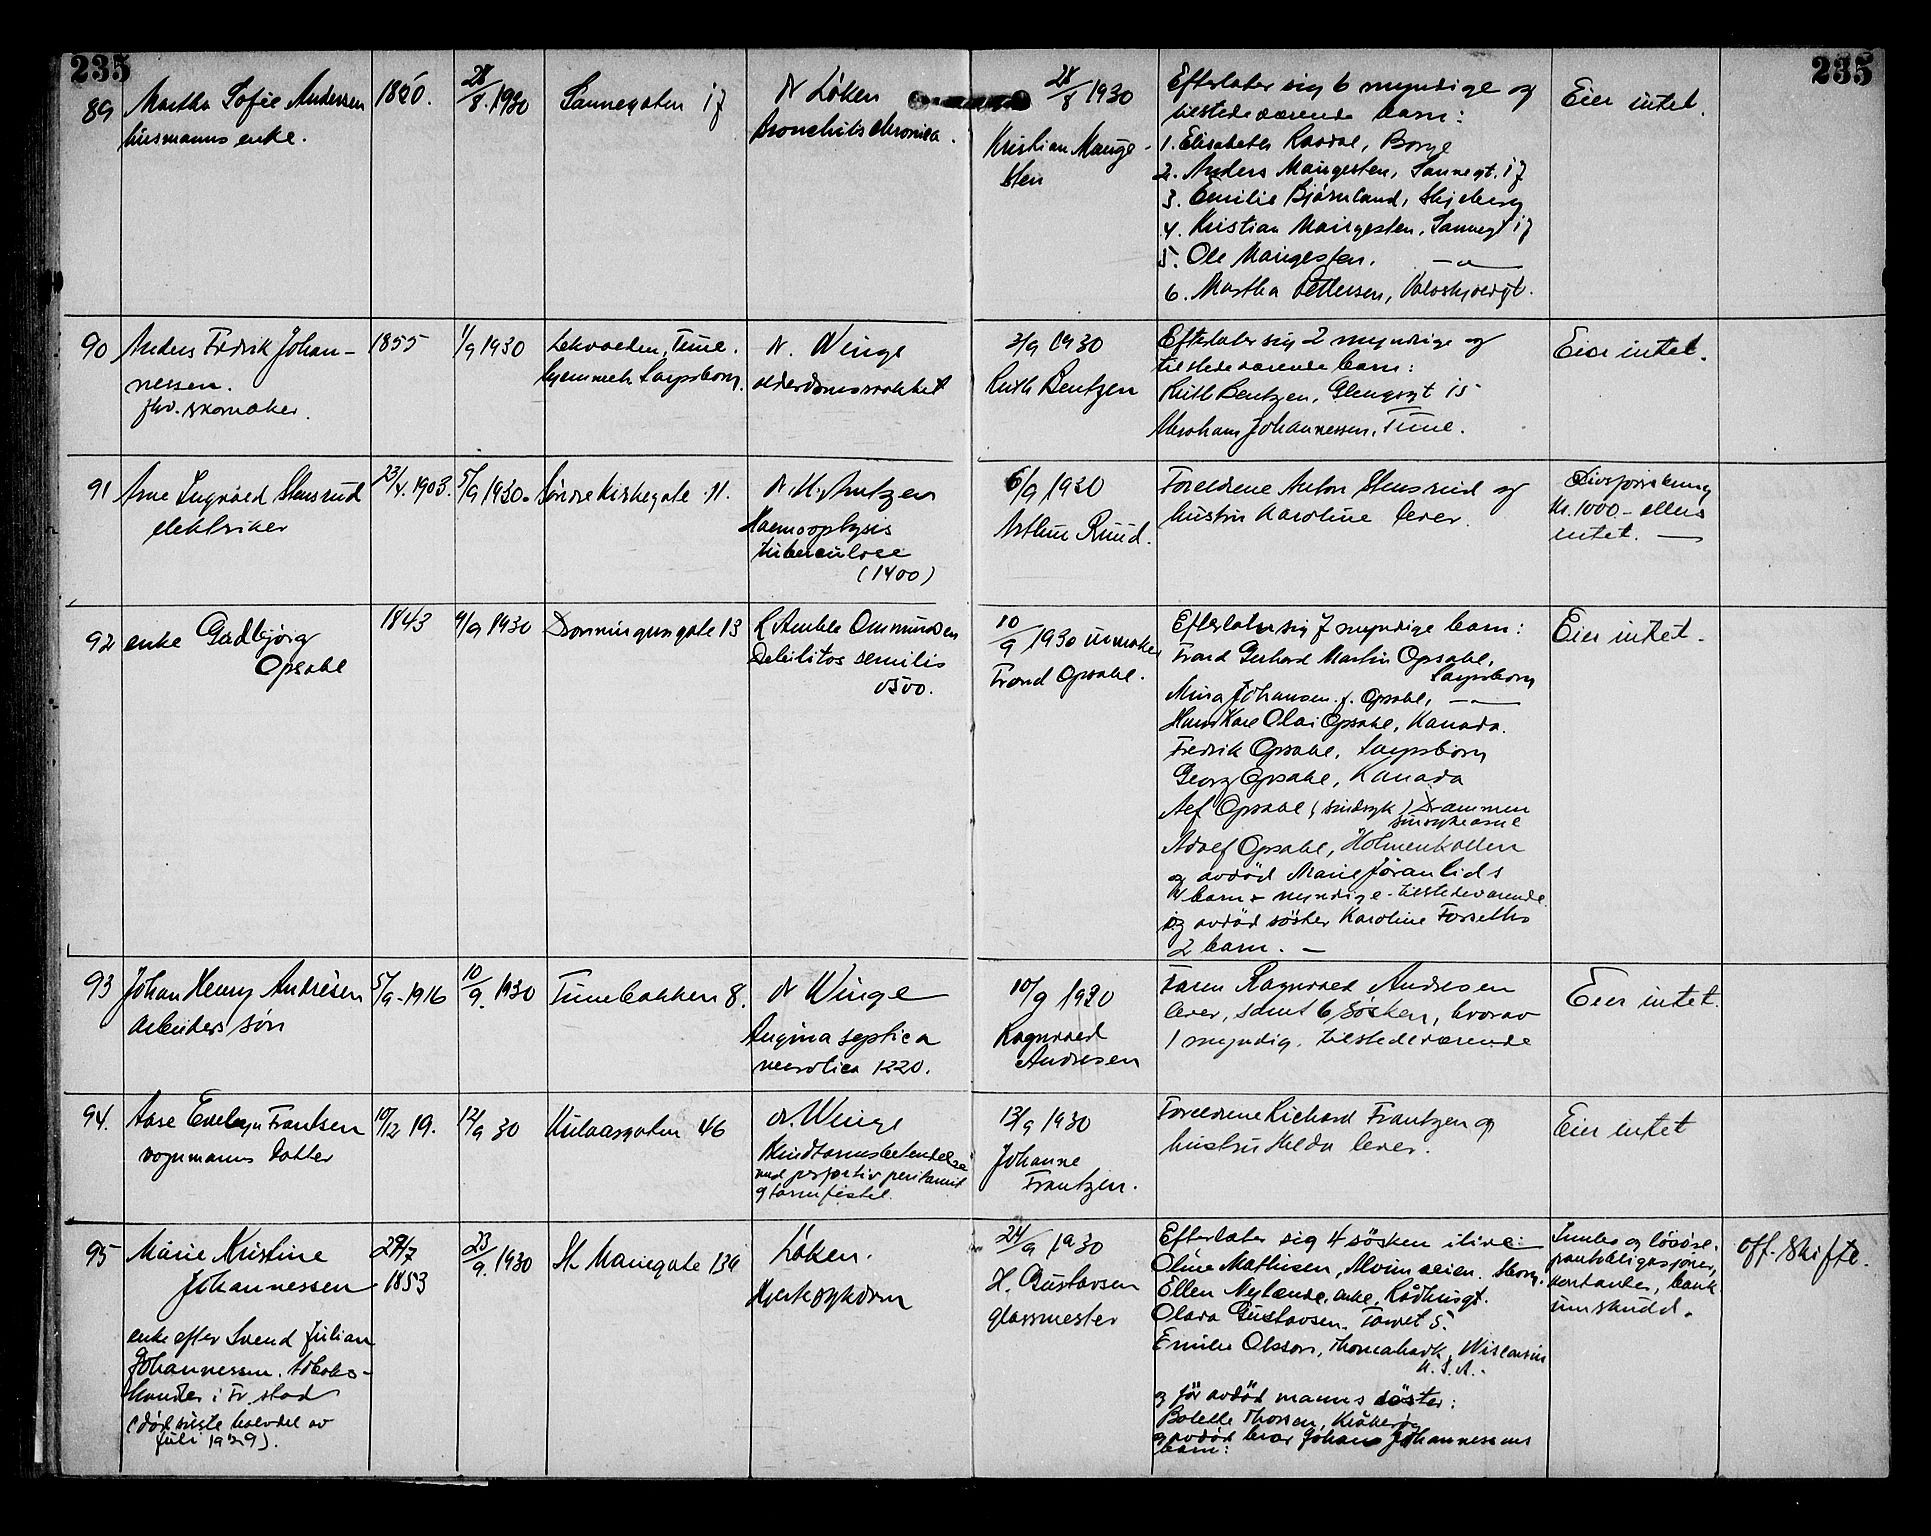 235
235
89
Martha Sofie Andersen
husmanns enke.
1850.
28/8.1930
Sannegaten 17
dr Løken
Bronchitis chronica.
28/8 1930
Kristian Mauge-
sten
Efterlater sig 6 myndige og
tilstedeværende barn:
1. Elisabeth Raadal, Borge
2. Anders Maugesten, Sannegt. 17
3. Emilie Bjørnland, Skjeberg
4. Kristian Maugesten, Sannegt 17
5. Ole Maugesten. —"—
6. Martha Pettersen,
Eier intet.
90
Anders Fredrik Johan-
nessen.
fhv. skomaker.
1855
1/9 1930
Tune.
hjemmeh. Sarpsborg.
dr. Winge
alderdomssvakhet
3/9 1930
Ruth Bentzen
Efterlater sig 2 myndige og
tilstedeværende barn:
Ruth Bentzen, Glengsgt 15
Abraham Johannessen, Tune.
Eier intet.
91
Arne Ingvald Stensrud
elektriker
23/4.1903.
5/9 1930.
Søndre Kirkegate 11.
dr. Arntzen
Haemoptysis
tuberculose
(1400)
6/9 1930
Arthur Ruud.
Foreldrene Anton Stensrud og
hustru Karoline lever.
Livsforsikring
kr. 1000.- ellers
intet. —
92
enke Gudbjørg
Opsahl
1843
9/9 1930
Dronningensgate 13
R Amble Ommundsen
Debilitas senilis
0500.
10/9 1930 urmaker
Trond Opsahl.
Efterlater sig 7 myndige barn:
Trond Gerhard Martin Opsahl,
Sarpsborg
Mina Johansen f. Opsahl, —"—
Hans Karl Olai Opsahl, Kanada.
Fredrik Opsahl, Sarpsborg
Georg Opsahl, Kanada
Alf Opsahl (sindsyk) Drammen
sinsykeasyl
Adolf Opsahl, Holmenkollen
og avdød Marie Jøranlids
4 barn - myndige - tilstedeværende
og avdød søster Karoline Forseths
2 barn. —
93
Johan Henry Andresen
arbeiders søn
5/9-1916
10/9. 1930
Tunebakken 8.
dr Winge
Angina septica
necrotica 1220.
10/9 1930
Ragnvald
Andresen
Faren Ragnvald Andresen
lever, samt 6 søsken, hvorav
1 myndig. tilstedeværende
Eier intet.
94.
Aase Evelyn Frantsen
vognmanns datter
10/12 19.
12/9 30
Kulaasgaten 46
dr. Winge
Blindtarmsbetendelse
med perforativ peritonit
og tarmfistel.
13/9 1930
Johanne
Frantzen.
Foreldrene Richard Frantzen og
hustru Helda lever.
Eier intet
95
Marie Kristine
Johannessen
enke efter Svend Julian
Johannessen. tobaks-
handler i Fr.stad
(død siste halvdel av
juli 1929).
29/7
1853
23/9. 1930
St. Mariegate 139
Løken.
Hjertesykdom
24/9 1930
H. Gustavsen
glassmester
Efterlater sig 4 søsken ilive:
Oline Mathisen,
Ellen Nylænde, enke, Rådhusgt.
Olava Gustavsen. Torvet 5.
Emilie Olsson, Thomahawk, Wisconsin
U.S.A.-
og før avdød manns søster:
Bolette Thorsen, Kråkerøy
og avdød bror Johans Johannessens
barn:
Innbo og løsøre.
pantobligasjoner,
kontanter, bank
innskudd.
Off. Skifte.